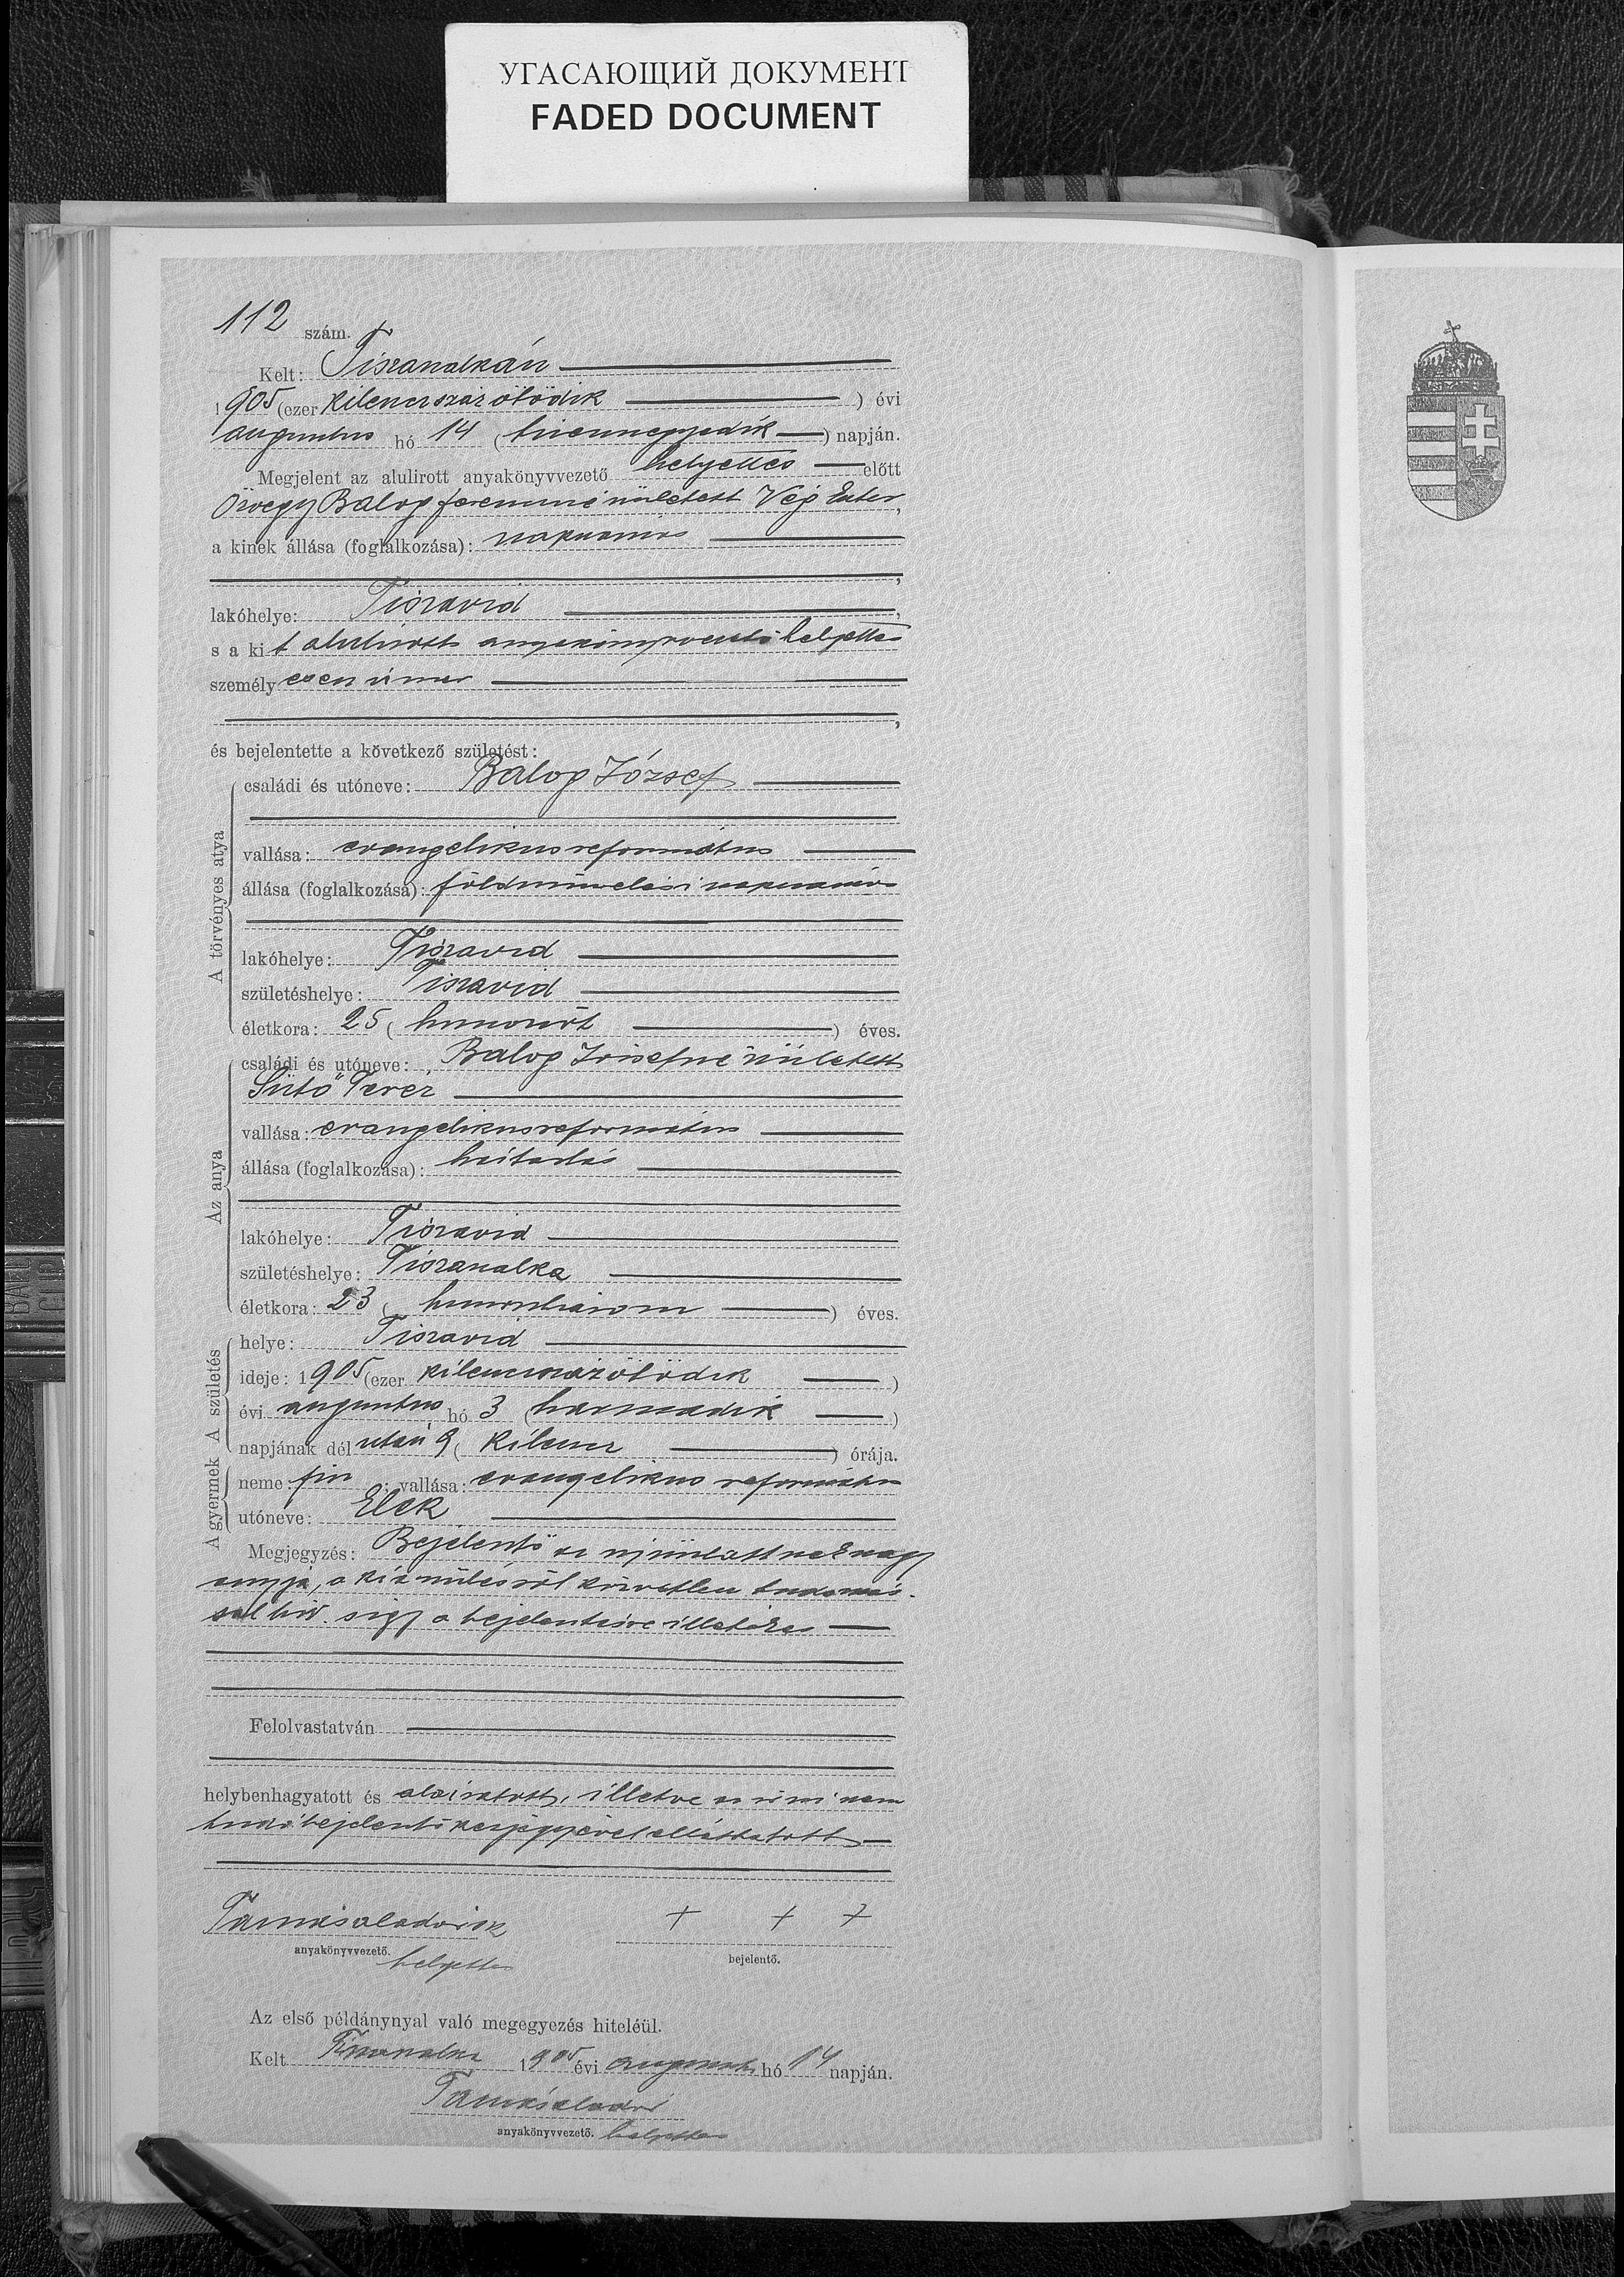 УГАСАЮЩИЙ ДОКУМЕНТ
FADED DOCUMENT
112 szám.
Kelt: Tiszasalkán
1905 (ezer kilencszázötödik ) évi
augusztus hó 14 ( tizennegyedik ) napján.
Megjelent az alulirott anyakönyvvezető helyettes előtt
Özvegy Balog Ferencné született Vég Eszter,
a kinek állása (foglalkozása): napszámos
lakóhelye: Tiszavid,
s a kit alulirott anyakönyvvezető helyettes
személyesen ismer
és bejelentette a következő születést:
A törvényes atya
családi és utóneve: Balog József
vallása: evangelikus református
állása (foglalkozása): földmívelési napszámos
lakóhelye: Tiszavid
születéshelye: Tiszavid
életkora: 25 ( huszonöt ) éves.
Az anya
családi és utóneve: Balog Józsefné született
Sütő Teréz
vallása: evangelikus református
állása (foglalkozása): háztartás
lakóhelye: Tiszavid
születéshelye:
életkora: 23 ( huszonhárom ) éves.
A születés
helye: Tiszavid
ideje: 1905 (ezer kilencszázötödik )
évi augusztus hó 3 ( harmadik )
napjának délután 9 ( kilenc ) órája.
A gyermek
neme: fiu; vallása: evangelikus református
utóneve: Elek
Megjegyzés: Bejelentő az ujszülöttnek nagy
anyja, a ki a szülésről közvetlen tudomás-
sal bír s így a bejelentésre illetékes
Felolvastatván
helybenhagyatott és aláiratott, illetve az irni nem
tudó bejelentő kézjegyével elláttatott
+ + +
anyakönyvvezető. helyettes
bejelentő.
Az első példánynyal való megegyezés hiteléül.
Kelt 1905 évi augusztus hó 14 napján.
anyakönyvvezető. helyettes